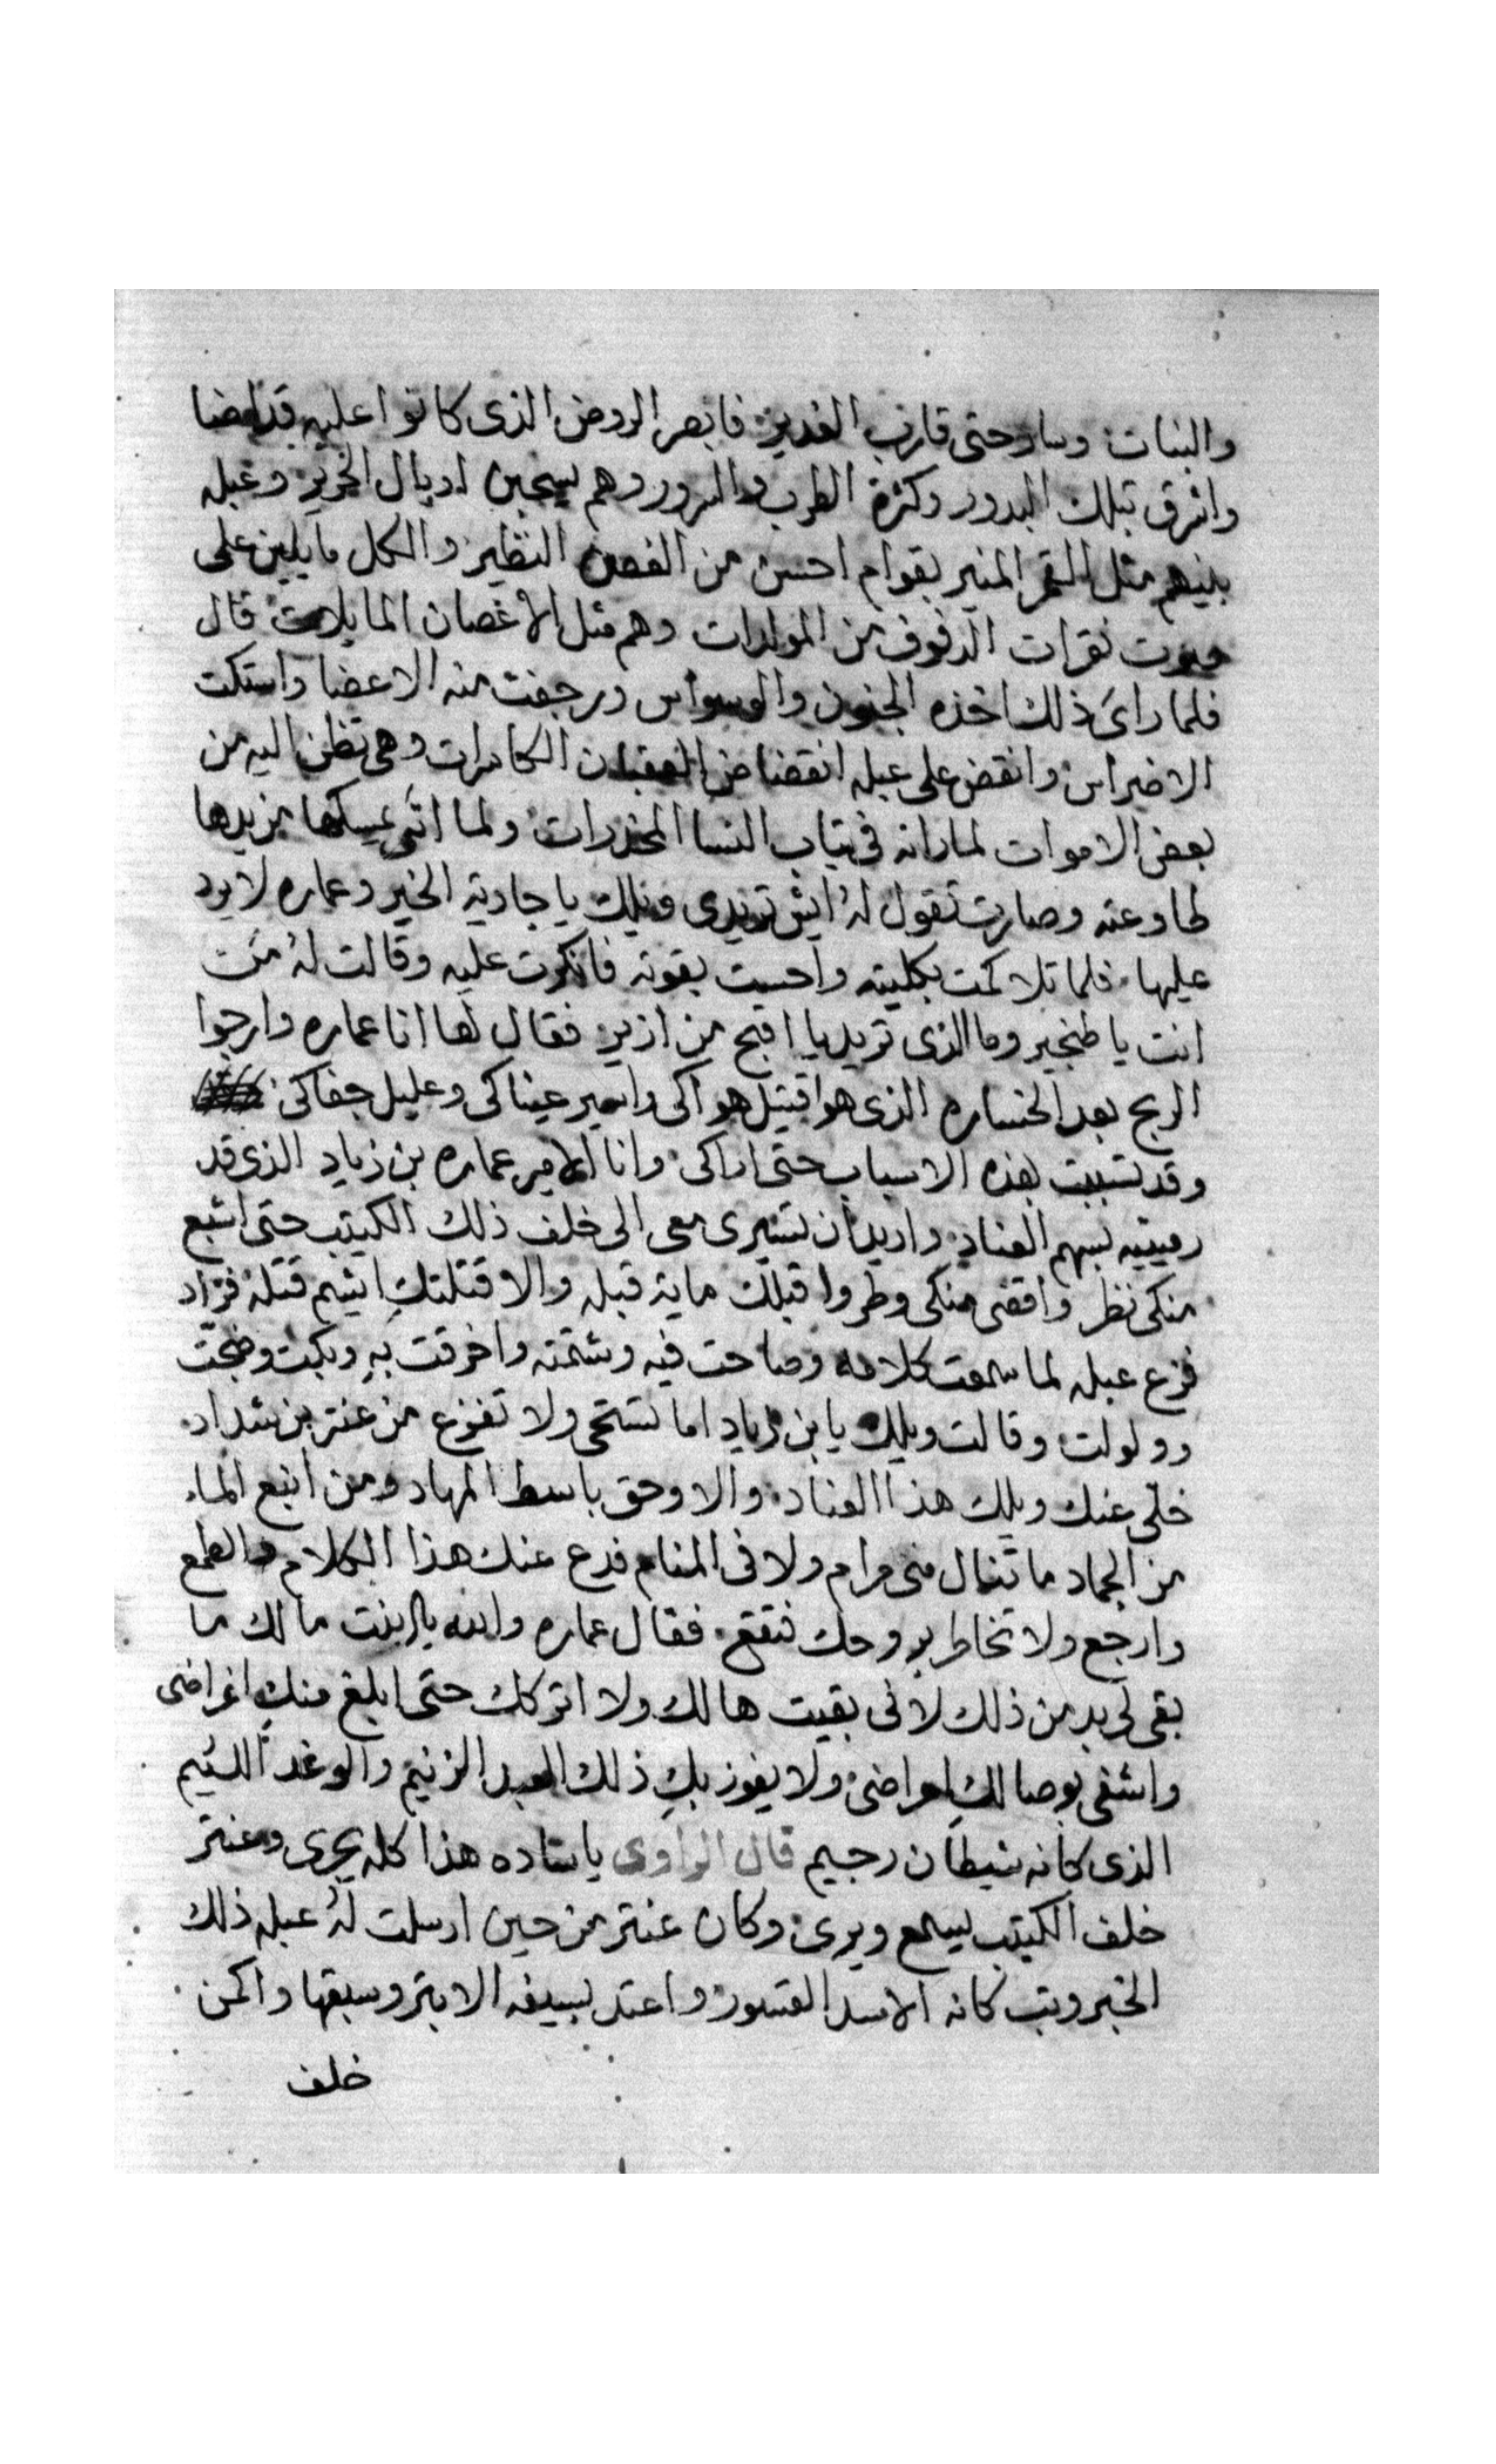 والبنات وسار حتى قارب الغدير فابصر الروض الذى كانوا عليه قد اضا
واشرق بتلك البدور وكثرة الطرب والسرور وهم يسحبن اديال الحرير وعبله
بينهم مثل القمر المنير بقوام احسن من الغصن النظير والكل مايلين على
صوت نقرات الدفوف من المولدات وهم مثل الاغصان المايلات قال
فلما راىَ ذلك اخذه الجنون والوسواس ورجفت منه الاعضا واستكت
الاضراس وانقض على عبله انقضاض العقبان الكاسرات وهى تظن اليه من
بعض الاموات لما راته فى تياب النسا المخدرات ولما اتى يمسكها من يدها
طاوعته وصارت تقول لهُ ايش تريدى ويلك يا جارية الخير وعماره لا يرد
عليها فلما تلاكمت بكليته واحست بقوته فانكرت عليه وقالت لهُ من
انت يا طنجير وما الذى تريد يا اقبح من ازير فقال لها انا عماره وارجوا
الربح بعد الخساره الذى هوا قتيل هواكى واسير عيناكى وعليل جفاكى
وقد تسببت بهذه الاسباب حتى اراكى وانا الامير عماره بن زياد الذى قد
رميتيه بسهم العناد واريد ان تسيرى معى الى خلف ذلك الكيتب حتى اشبع
منكى نظر واقضى منكى وطر واقبلك ماية قبله والا قتلتكِ ايشم قتله فزاد
فزع عبله لما سمعت كلامه وصاحت فيه وشتمته واخرقت بهِ وبكت وضجت
وولولت وقالت ويلك يا بن زياد اما تستحى ولا تفزع من عنتر بن شداد
خلى عنك ويلك هذا العناد والا وحق باسط المهاد ومن انبع الماء
من الجماد ما تنال منى مرام ولا فى المنام فدع عنك هذا الكلام والطمع
وارجع ولا تخاطر بروحك فتقع فقال عماره والله يا بنت مالك ما
بقى لى بد من ذلك لانى بقيت هالك ولا اتركك حتى ابلغ منكِ اغراضى
واشفى بوصالكِ امراضى ولا يفوز بكِ ذلك العبد الزنيم والوغد اللئيم
الذى كانه شيطان رجيم قال الراوى ياساده هذا كله يجرى وعنتر
خلف الكيتب يسمع ويرى وكان عنتر من حين ارسلت لهُ عبله ذلك
الخبر وتب كانه الاسد القسور واعتد بسيفه الابتر وسبقها واكمن
خلف